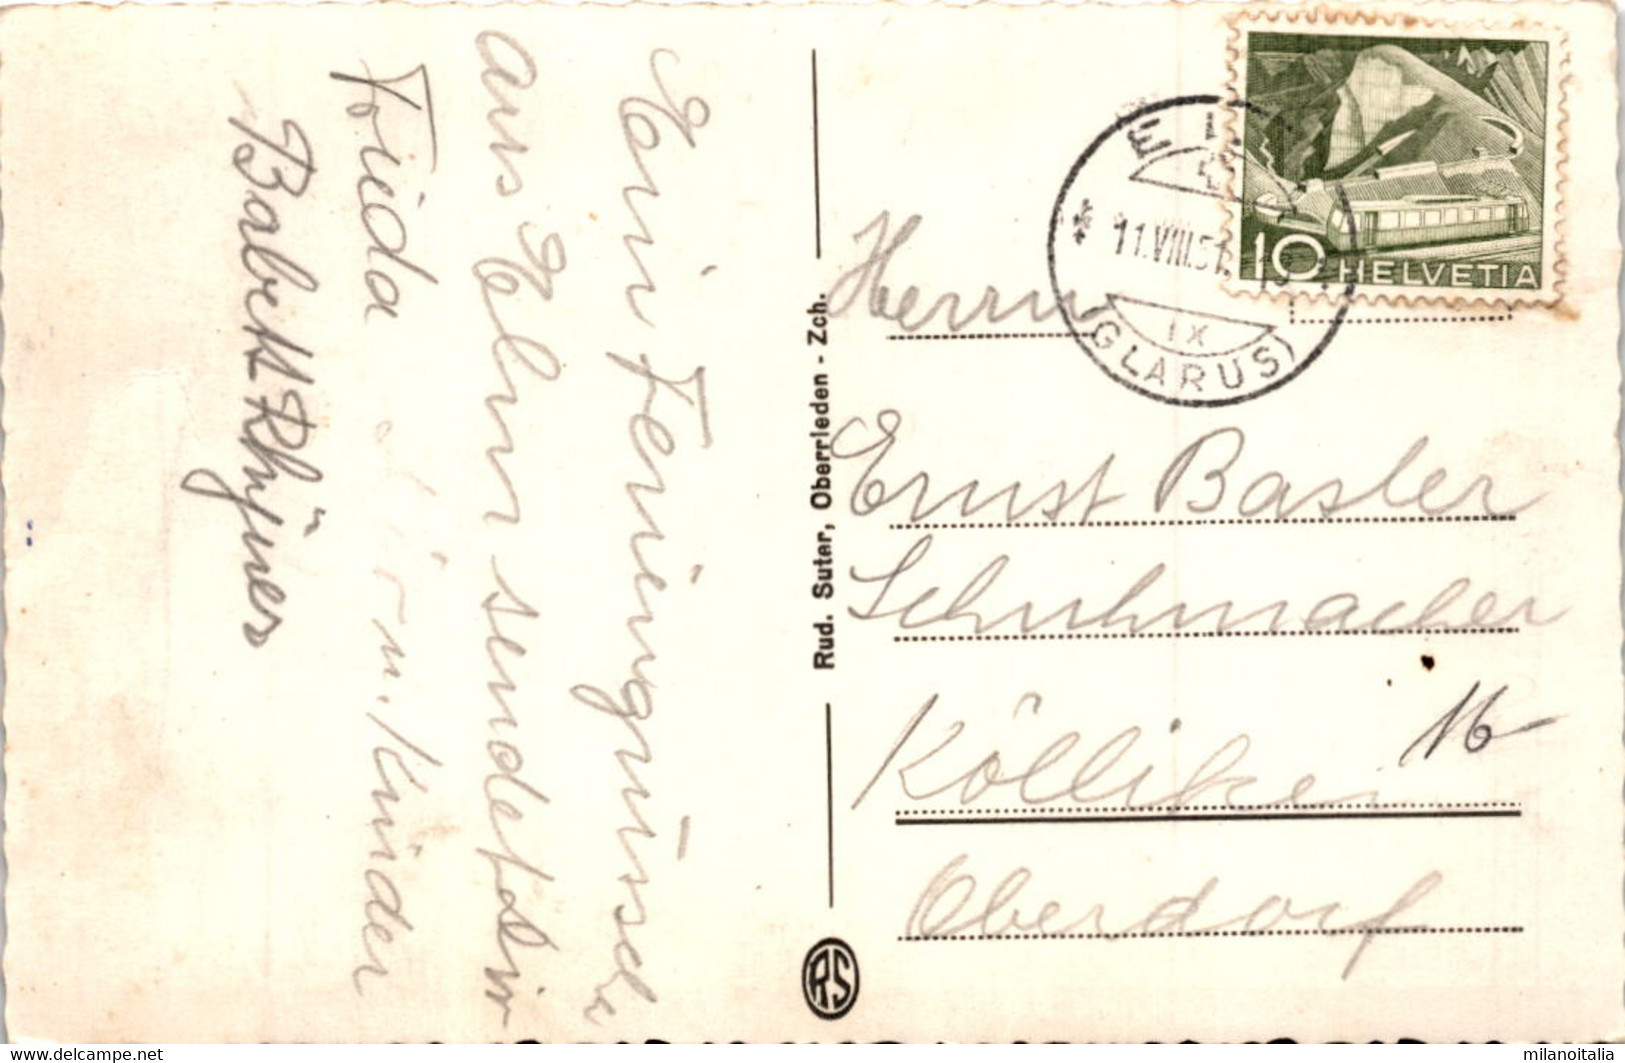 Ein Feriengrüssche
aus Elm sendet dir
Frieda u. Kinder
Babeth Rhyner
Rud. Suter, Oberrieden - Zch.
RS
10 HELVETIA
11.VIII.51.
IX
(GLARUS)
Herrn
Ernst Basler
Schuhmacher
Kölliken
16
Oberdorf
www.delcampe.net
milanoitalia